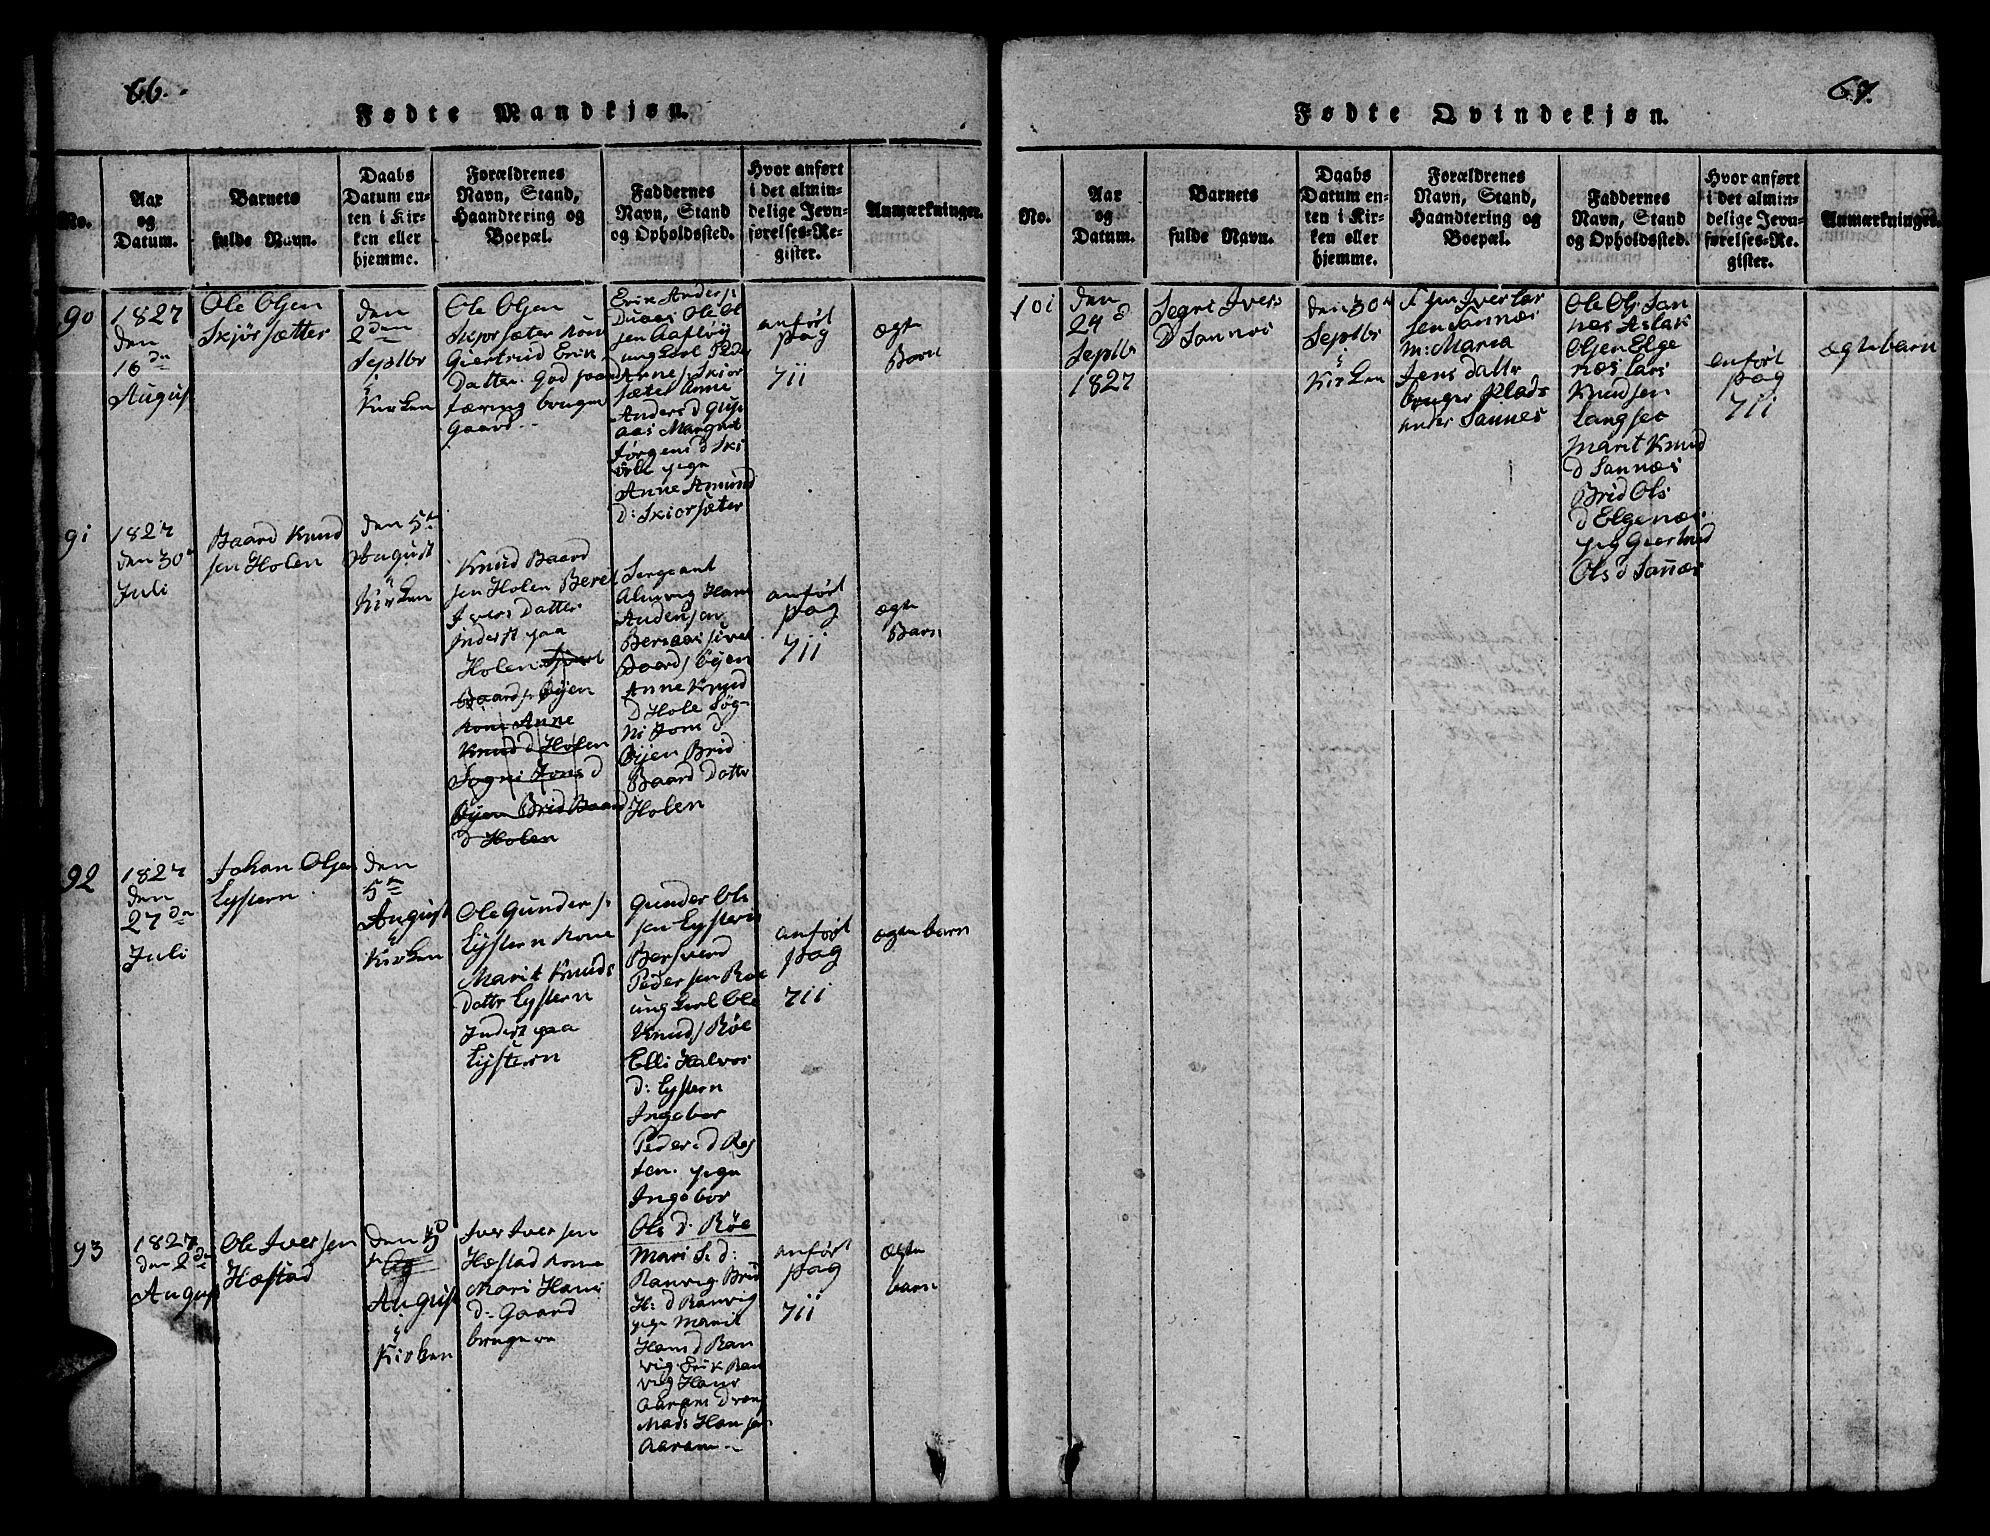 66.
Fødte Mandkjøn.
No.
Aar
og
Datum.
Barnets
fulde Navn.
Daabs
Datum en-
ten i Kir-
ken eller
hjemme.
Forældrenes
Navn, Stand,
Haandtering og
Boepæl.
Faddernes
Navn, Stand
og Opholdssted.
Hvor anført
i det almin-
delige Jevn-
førelses-Re-
gister.
Anmærkninger.
90
1827
den
16 dn
August
Ole Olsen
Skjörsætter
den
2den
Septbr
i
Kirken
Ole Olsen
Skjorsæter kone
Giertrud Erik
Datter. God
tæring bruger
Gaard.
Erik Anders:
Ole Ol
sen
ungkarl Peder
Arne s: Skior
sæter Anne
Anders d
aas Margrit
Jørgens d
pige
Anne Amund
d: Skiorsæter
anført
pag
711
ægte
Barn
91
1827
den 30n
Juli
Baard Knud
sen Holen
den 5n
August
i
Kirken
Knud Baard
sen Holen Beret
Ivers Datter
Inderst paa
Holen
Baard s: Öyen
kone Anne
Knud d Holen
Sogni Jons d
Öyen Brid Baard
d Holen
Sergeant
Almvig Hans
Andersen
Bersaas Sivert
Baard s Öyen
Anne Knud
d Hole Sög-
ni Jom d
Öyen Brid
Baard Dattr
Holen
anført
pag
711
ægte
Barn
92
1827
den
27 dn
Juli
Johan Olsen
Lystern
den
5n
August
i
Kirken
Ole Gunder s:
Lystern kone
Marit Knuds
Dattr Lystern
Inderst paa
Lystern
Gunder Ole
sen Lystern
Bersverd
Pedersen Röe
ungkarl Ole
Knud s Röe
Elli Halvor
d: Lystern
Ingebor
Peders d Røs
ten. pige
Ingebor
Ols d. Röe
anført
pag
711
ægte barn
93
1827
den 2dn
August
Ole Iversen
Hæstad
den 5
August
i
Kirken
Iver Iversen
Hæstad kone
Mari Hans
d: Gaard
bruger
Mari S. d:
Ranvig Brid
H: d Ranvig
pige Marit
Hans d Ran
vig Erik Ran
vig Hans
Aaram dreng
Mads Hansen
Aaram
anført
pag
711
ægte
barn
67.
Fødte Qvindekjøn.
No.
Aar
og
Datum.
Barnets
fulde Navn.
Daabs
Datum en-
ten i Kir-
ken eller
hjemme.
Forældrenes
Navn, Stand,
Haandtering og
Boepæl.
Faddernes
Navn, Stand
og Opholdssted.
Hvor anført
i det almin-
delige Jevn-
førelses-Re-
gister.
Anmærkninger.
101
den
24 d
Septbr
1827
Segri Ivers
D Sannes
den 30n
Septbr
i
Kirken
Iver Lar
sen Sannes
m: Maria
Jens dattr
bruger Plads
under Sannes
Ole Ols San
nes Aslak
Olsen Elge
nes Lars
Knudsen
Langset
Marit Knud
d Sannes
Brid Ols
d Elgenæs
pig Giertrud
Ols d Sannes
anført
pag
711
ægte barn